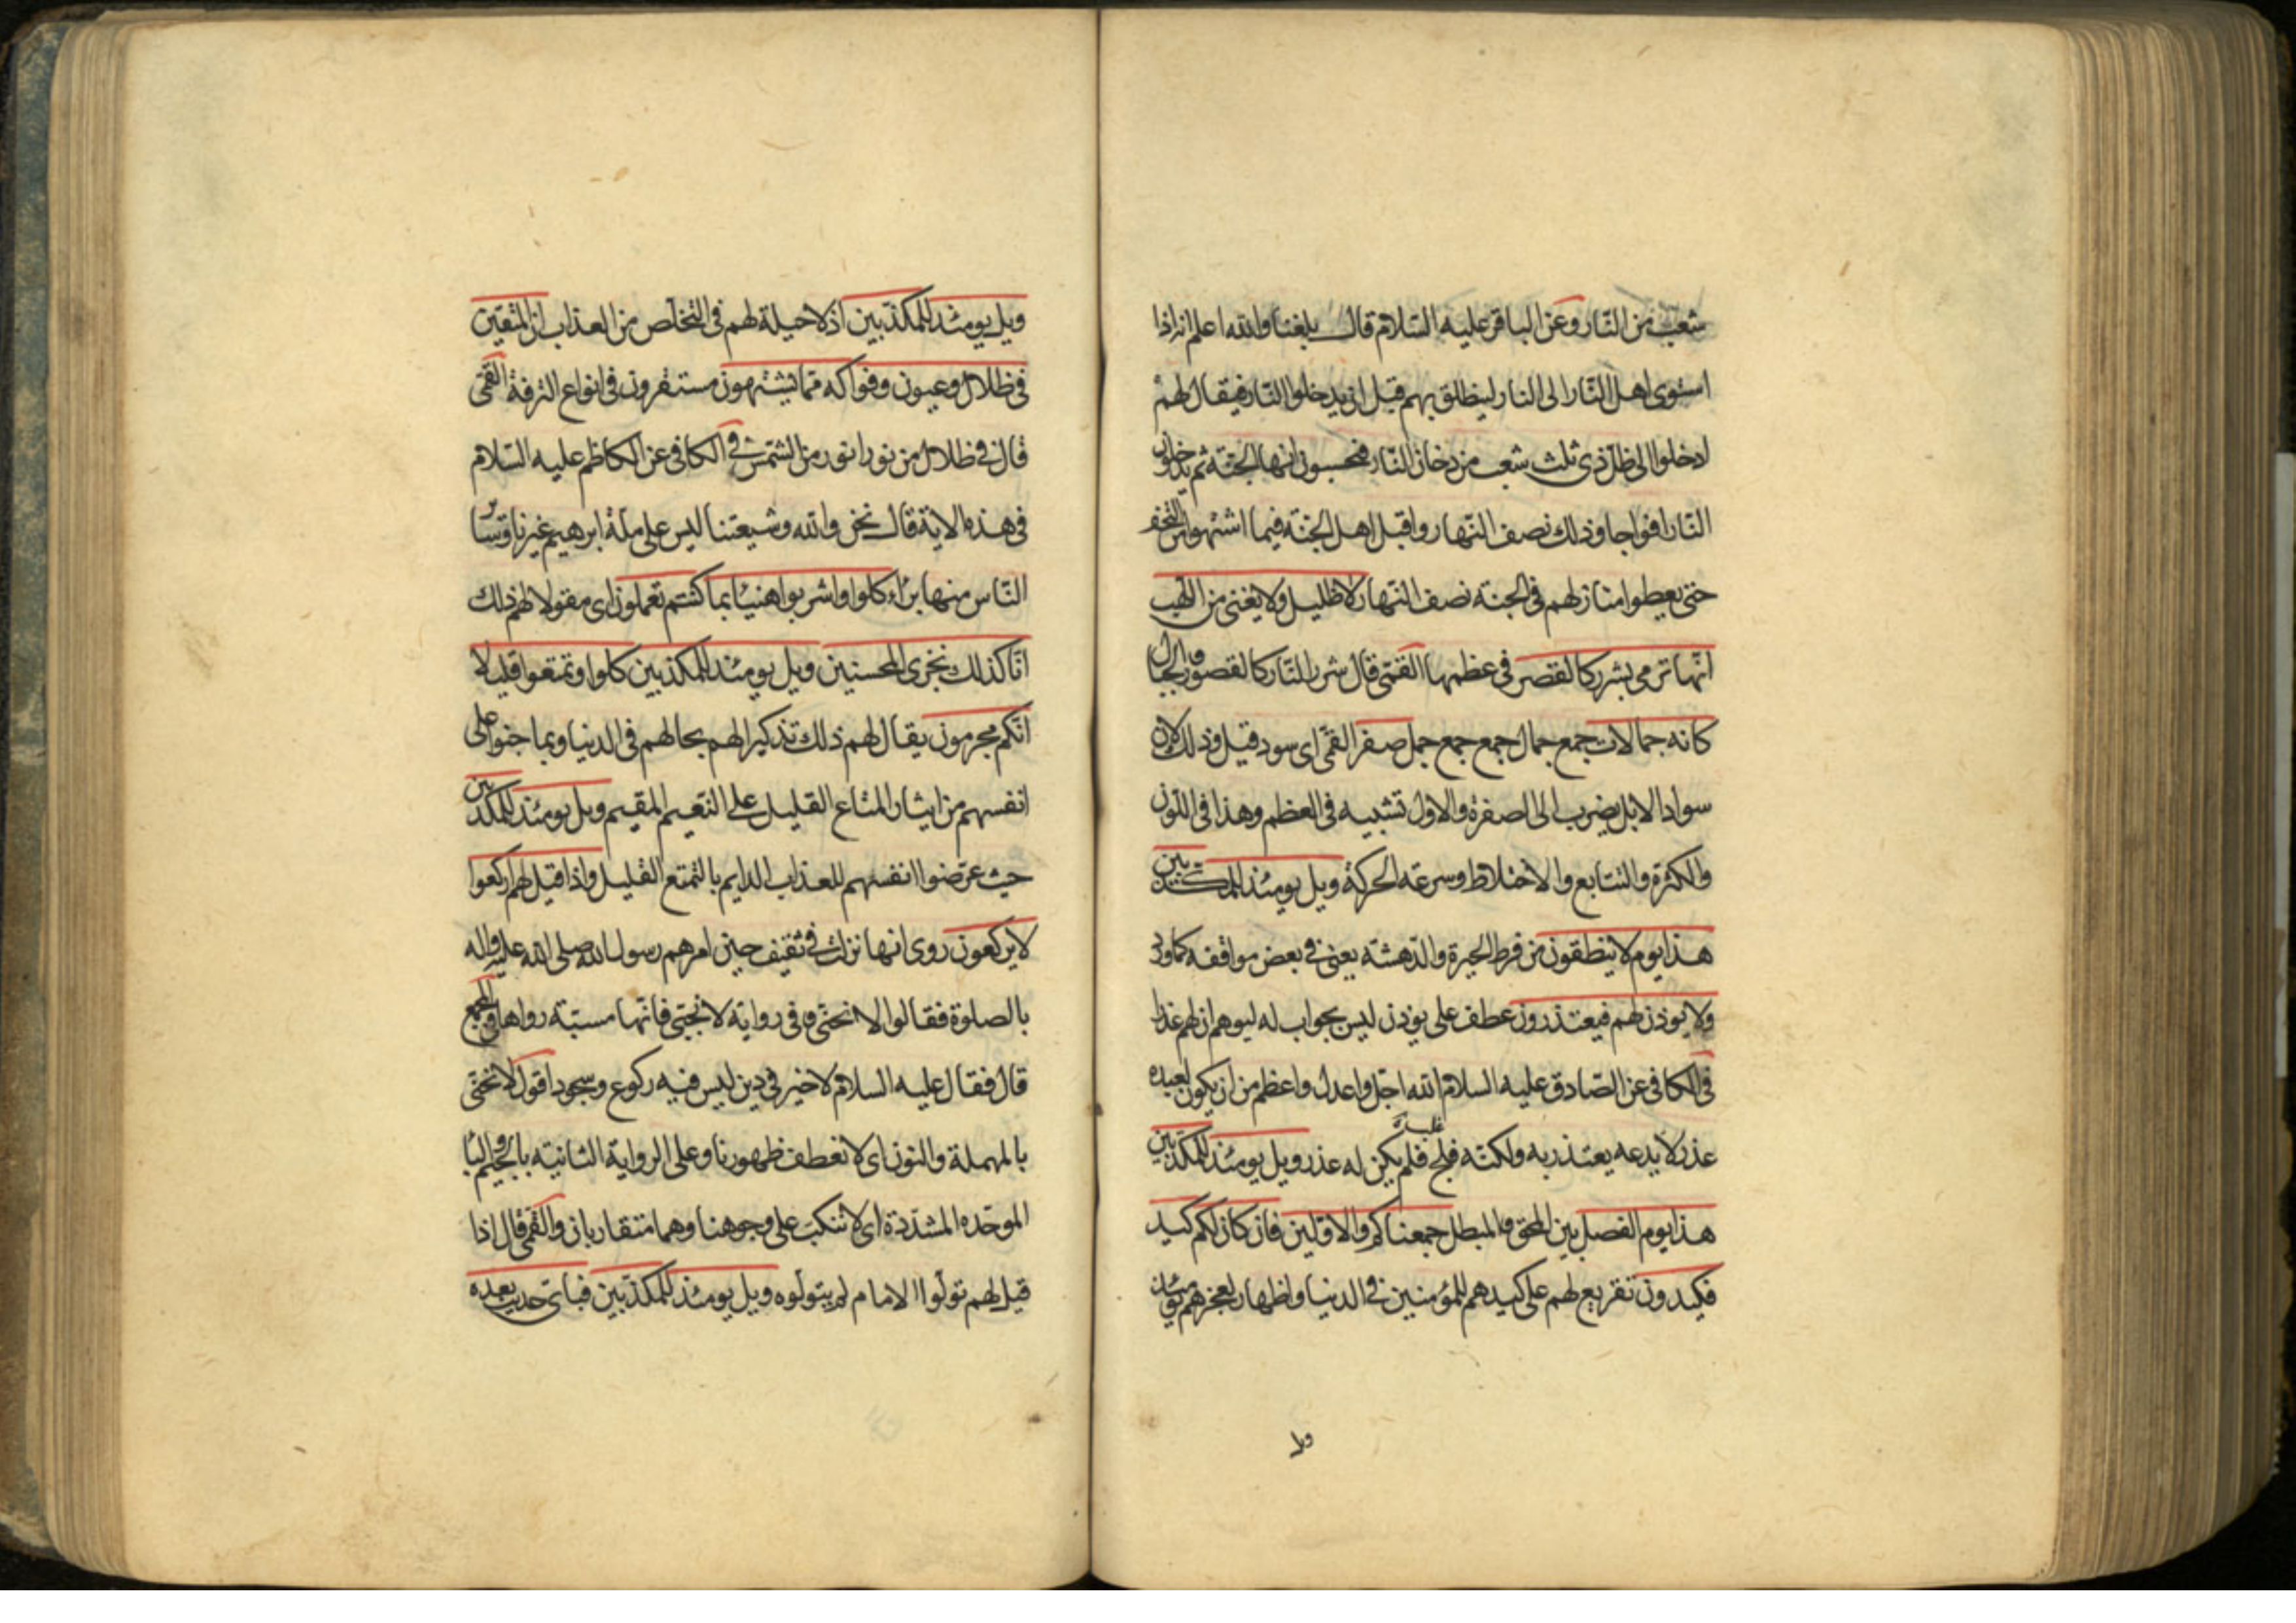 شعب من النار وعن الباقر عليه السلام قال بلغنا والله اعلم انه اذا
استوى اهل النار الى النار لينطلق بهم قبل ان يدخلوا النار فيقال لهم
ادخلوا الى ظل ذى ثلث شعب من دخان النار فيحسبون انها الجنة ثم يدخلون
النار افواجا وذلك نصف النهار واقبل اهل الجنة فيما اشتهوا من التحف
حتى يعطوا منازلهم فى الجنة نصف النهار لا ظليل ولا يغنى من اللهب
انها ترمى بشرر كالقصر فى عظمها القمى قال شرر النار كالقصور والجبال
كانه جمالات جمع جمال جمع جمع جمل صفر القمى اى سود قيل وذلك لان
سواد الابل يضرب الى الصفرة والاول تشبيه فى العظم وهذا فى اللون
والكثرة والتتابع والاختلاط وسرعة الحركة ويل يومئذ للمكذبين
هذا يوم لا ينطقون من فرط الحيرة والدهشة يعنى فى بعض مواقفه كما ورد
ولا يوذن لهم فيعتذرون عطف على يوذن ليس بجواب له ليوهم ان لهم عذرا
فى الكافى عن الصادق عليه السلام الله اجل واعدل واعظم من ان يكون لعبده
عذر لا يدعه يعتذر به ولكنه فلج فلم يكن له عذر ويل يومئذ للمكذبين
هذا يوم الفصل بين المحق والمبطل جمعناكم والاولين فان كان لكم كيد
فكيدون تقريع لهم على كيدهم للمؤمنين فى الدنيا واظهار لعجزهم يومئذ
ويل
ويل يومئذ للمكذبين اذ لا حيلة لهم فى التخلص من العذاب ان المتقين
فى ظلال وعيون وفواكه مما يشتهون مستقرون فى انواع الترفة القمى
قال فى ظلال من نور انور من الشمس فى الكافى عن الكاظم عليه السلام
فى هذه الاية قال نحن والله وشيعتنا ليس على ملة ابرهيم غيرنا وسائر
الناس منها براء كلوا واشربوا هنيئا بما كنتم تعملون اى مقولا لهم ذلك
انا كذلك نجزى المحسنين ويل يومئذ للمكذبين كلوا وتمتعوا قليلا
انكم مجرمون يقال لهم ذلك تذكيرا لهم بحالهم فى الدنيا وبما جنوا على
انفسهم من ايثار المتاع القليل على النعيم المقيم ويل يومئذ للمكذبين
حيث عرضوا انفسهم للعذاب الدايم بالتمتع القليل واذا قيل لهم اركعوا
لا يركعون روى انها نزلت فى ثقيف حين امرهم رسول الله صلى الله عليه واله
بالصلوة فقالوا لا ننحنى وفى رواية لا نجبى فانها مسبة رواها فى المجمع
قال فقال عليه السلام لا خير فى دين ليس فيه ركوع وسجود اقول لا ننحنى
بالمهملة والنون اى لا نعطف ظهورنا وعلى الرواية الثانية بالجيم والباء
الموحده المشددة اى لا ننكب على وجوهنا وهما متقاربان والقمى قال اذا
قيل لهم تولوا الامام لم يتولوه ويل يومئذ للمكذبين فباى حديث بعده